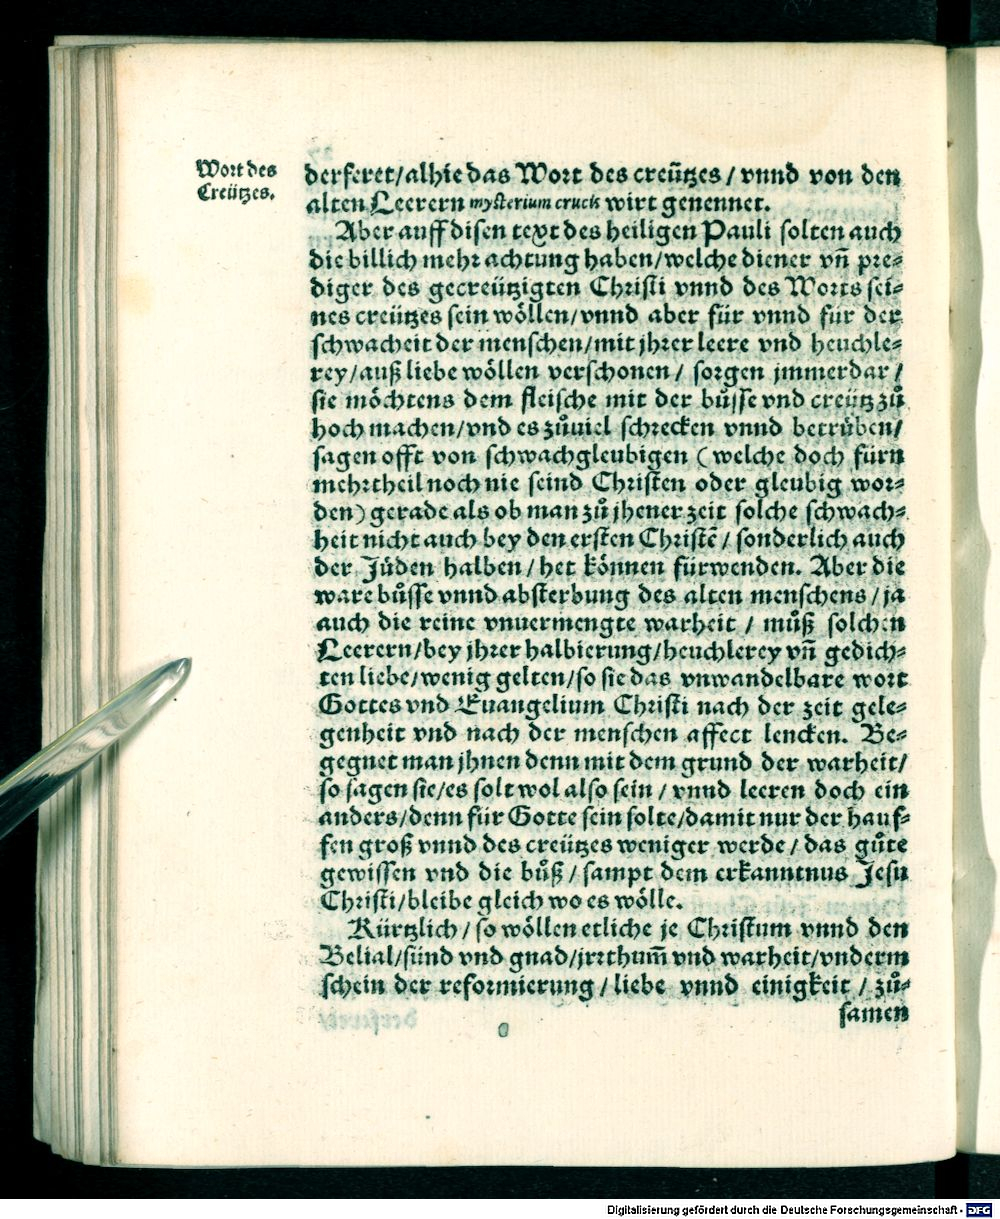 Wort des
Creützes.
derferet/alhie das Wort des creützes/ vnnd von den
alten Leerern mysterium crucis wirt genennet.
Aber auff disen text des heiligen Pauli solten auch
die billich mehr achtung haben/welche diener vñ pre⸗
diger des gecreützigten Christi vnnd des Worts sei⸗
nes creützes sein wöllen/vnnd aber für vnnd für der
schwacheit der menschen/mit jhrer leere vnd heuchle⸗
rey/auß liebe wöllen verschonen/ sorgen jmmerdar/
sie möchtens dem fleische mit der bůsse vnd creütz zů
hoch machen/vnd es zůuiel schrecken vnnd betrüben/
sagen offt von schwachgleubigen (welche doch fürn
mehrtheil noch nie seind Christen oder gleubig wor⸗
den) gerade als ob man zů jhener zeit solche schwach⸗
heit nicht auch bey den ersten Christẽ/ sonderlich auch
der Jüden halben/het können fürwenden. Aber die
ware bůsse vnnd absterbung des alten menschens/ja
auch die reine vnuermengte warheit/ můß solchen
Leerern/bey jhrer halbierung/heuchlerey vñ gedich⸗
ten liebe/wenig gelten/so sie das vnwandelbare wort
Gottes vnd Euangelium Christi nach der zeit gele⸗
genheit vnd nach der menschen affect lencken. Be⸗
gegnet man jhnen denn mit dem grund der warheit/
so sagen sie/es solt wol also sein/vnnd leeren doch ein
anders/denn für Gotte sein solte/damit nur der hauf⸗
fen groß vnnd des creützes weniger werde/das gůte
gewissen vnd die bůß/sampt dem erkanntnus Jesu
Christi/bleibe gleich wo es wölle.
Kürtzlich/so wöllen etliche je Christum vnnd den
Belial/sünd vnd gnad/jrrthum̃ vnd warheit/vnderm
schein der reformierung/liebe vnnd einigkeit/zů⸗
samen
Digitalisierung gefördert durch die Deutsche Forschungsgemeinschaft - DFG